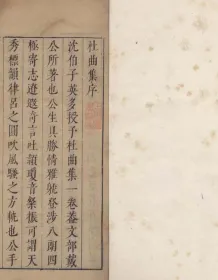 杜曲集序
沈伯子英多授予杜曲集一卷蓋文部戴
公所著也公生具勝情雅能登涉八朔四
極寄志遼遐奇言吐頷瓊音槃振可謂天
秀標韻律呂之圓吹風騷之方軌也公手